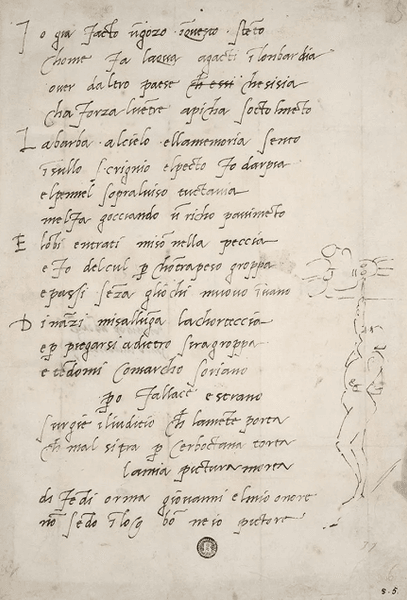 I o gia facto ūgozo īquesto stēto
chome fa lacqua agacti ī lombardia
over daltro paese ch essi chesisia
cha forza luētre apicha sottolmēto
L abarba alcielo ellamemoria sento
īsullo scrignio elpecto fo darpia
elpennel sopraluiso tuctavia
melfa gocciando ū richo pauimēto
E lōbi entrati misō nella peccia
e fo delcul p chōtrapeso groppa
epassi sēza gliochi muouo īuano
D ināzi misallūga lachorteccia
e p piegarsi adietro siragroppa
e tēdomi Comarcho soriano
po fallace e strano
surgie iliuditio ch lamēte porta
ch mal sipra p cerboctana torta
lamia pictura morta
di fēdi orma giovanni elmio onore
nō sēdo ī log bō ne io pictore
8.5.